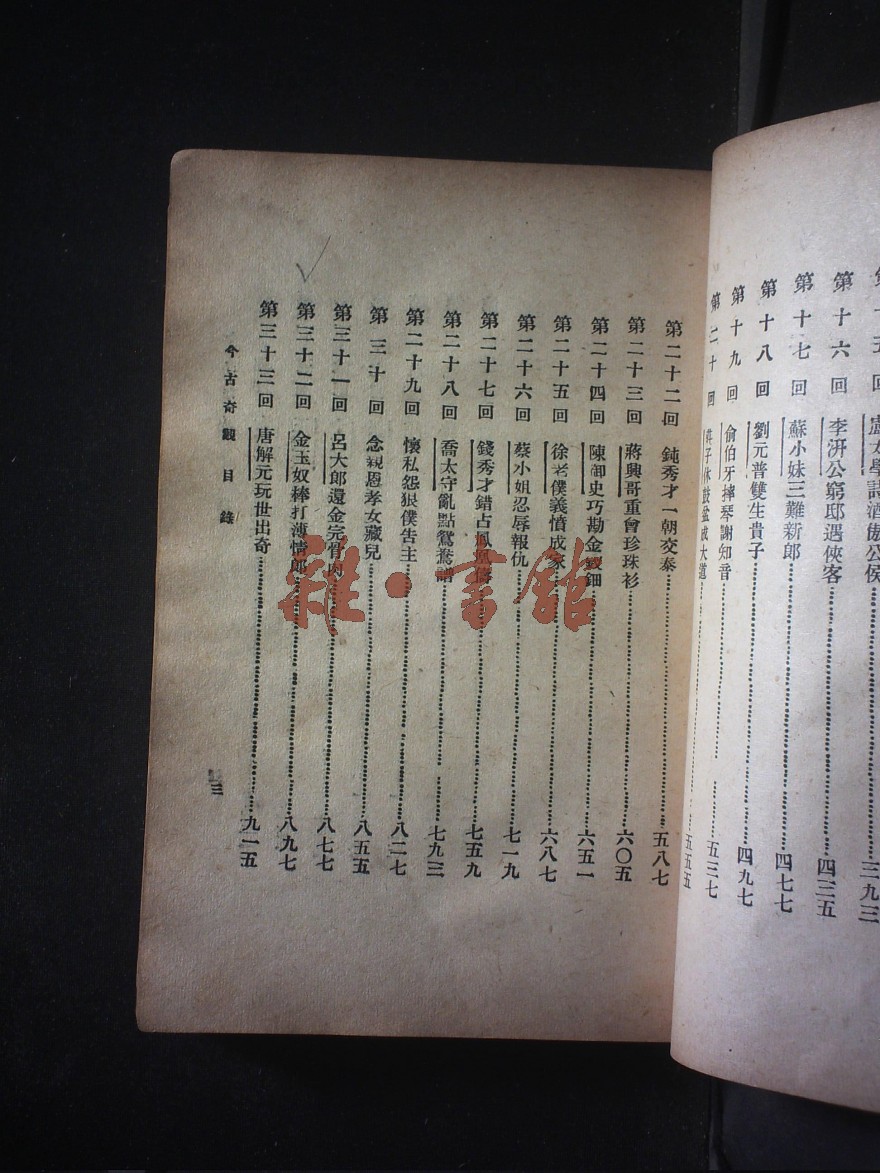 回 盧太學詩酒傲公侯……三九三
第十六回 李汧公窮邸遇俠客……四三五
第十七回 蘇小妹三難新郎……四七七
第十八回 劉元普雙生貴子……四九七
第十九回 俞伯牙摔琴謝知音……五三七
第二十回 莊子休鼓盆成大道……五五五
第二十二回 鈍秀才一朝交泰……五八七
第二十三回 蔣興哥重會珍珠衫……六〇五
第二十四回 陳御史巧勘金釵鈿……六五一
第二十五回 徐老僕義憤成家……六八七
第二十六回 蔡小姐忍辱報仇……七一九
第二十七回 錢秀才錯占鳳凰儔……七五九
第二十八回 喬太守亂點鴛鴦譜……七九三
第二十九回 懷私怨狠僕告主……八二七
第三十回 念親恩孝女藏兒……八五五
第三十一回 呂大郎還金完骨肉……八七七
第三十二回 金玉奴棒打薄情郎……八九七
第三十三回 唐解元玩世出奇……九一五
今古奇觀目錄
三
雜·書館